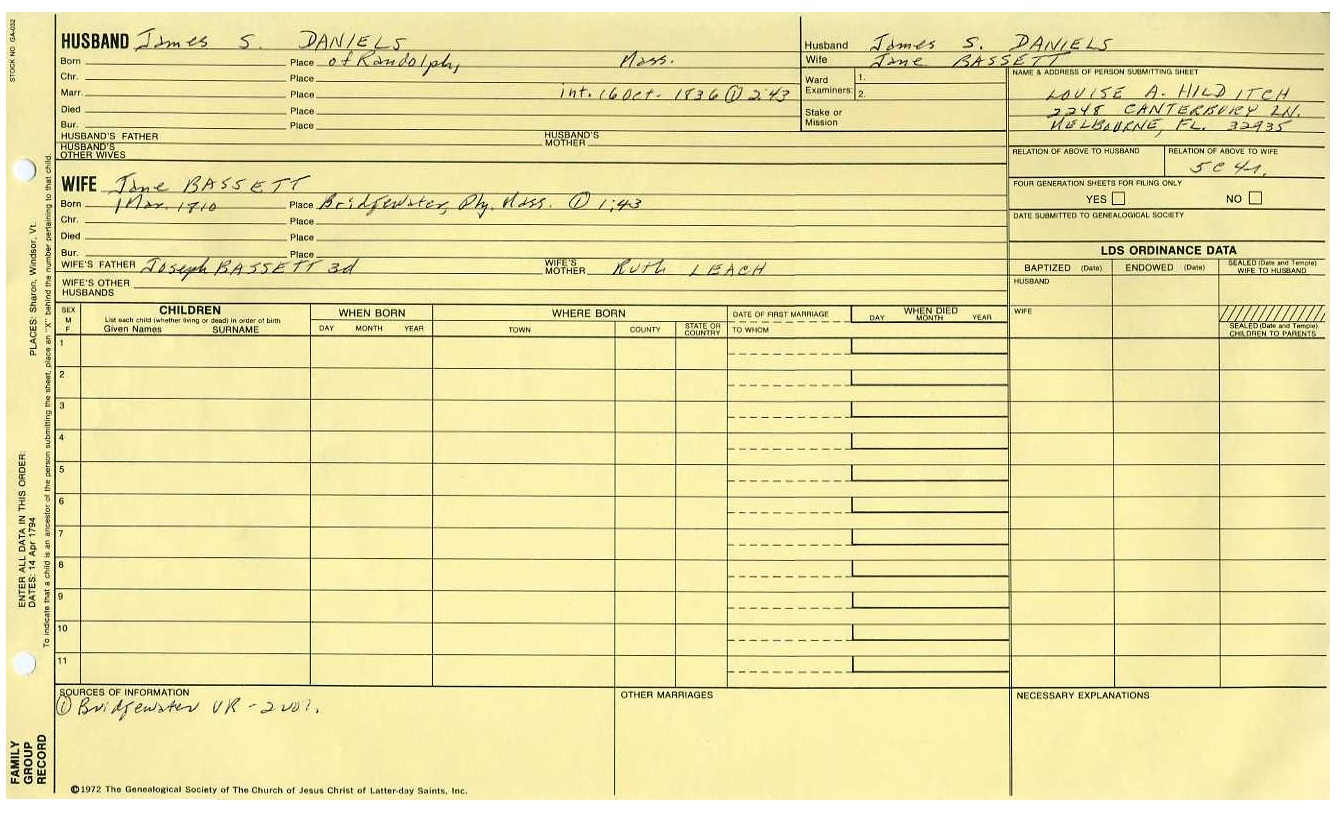 STOCK NO. GA-032
HUSBAND James S. DANIELS
Born Place of Randolph, Mass.
Chr. Place
Marr. Place int. 16 Oct. 1836 ① 2:43
Died Place
Bur. Place
HUSBAND'S FATHER HUSBAND'S MOTHER
HUSBAND'S OTHER WIVES
Husband James S. DANIELS
Wife Jane BASSETT
Ward Examiners: 1. 2.
Stake or Mission
NAME & ADDRESS OF PERSON SUBMITTING SHEET
LOUISE A. HILDITCH
2248 CANTERBURY LN.
MELBOURNE, FL. 32935
RELATION OF ABOVE TO HUSBAND RELATION OF ABOVE TO WIFE
5C4r.
FOUR GENERATION SHEETS FOR FILING ONLY
YES NO
DATE SUBMITTED TO GENEALOGICAL SOCIETY
WIFE Jane BASSETT
Born 1 Mar. 1810 Place Bridgewater, Ply. Mass. ① 1:43
Chr. Place
Died Place
Bur. Place
WIFE'S FATHER Joseph BASSETT 3d WIFE'S MOTHER Ruth LEACH
WIFE'S OTHER HUSBANDS
LDS ORDINANCE DATA
BAPTIZED (Date) ENDOWED (Date) SEALED (Date and Temple) WIFE TO HUSBAND
HUSBAND
WIFE
SEALED (Date and Temple) CHILDREN TO PARENTS
SEX M F
CHILDREN
List each child (whether living or dead) in order of birth
Given Names SURNAME
WHEN BORN
DAY MONTH YEAR
WHERE BORN
TOWN COUNTY STATE OR COUNTRY
DATE OF FIRST MARRIAGE
TO WHOM
WHEN DIED
DAY MONTH YEAR
1
2
3
4
5
6
7
8
9
10
11
SOURCES OF INFORMATION
① Bridgewater VR - 2 vol.
OTHER MARRIAGES
NECESSARY EXPLANATIONS
©1972 The Genealogical Society of The Church of Jesus Christ of Latter-day Saints, Inc.
PLACES: Sharon, Windsor, Vt.
ENTER ALL DATA IN THIS ORDER:
DATES: 14 Apr 1794
To indicate that a child is an ancestor of the person submitting the sheet, place an "X" behind the number pertaining to that child.
FAMILY GROUP RECORD